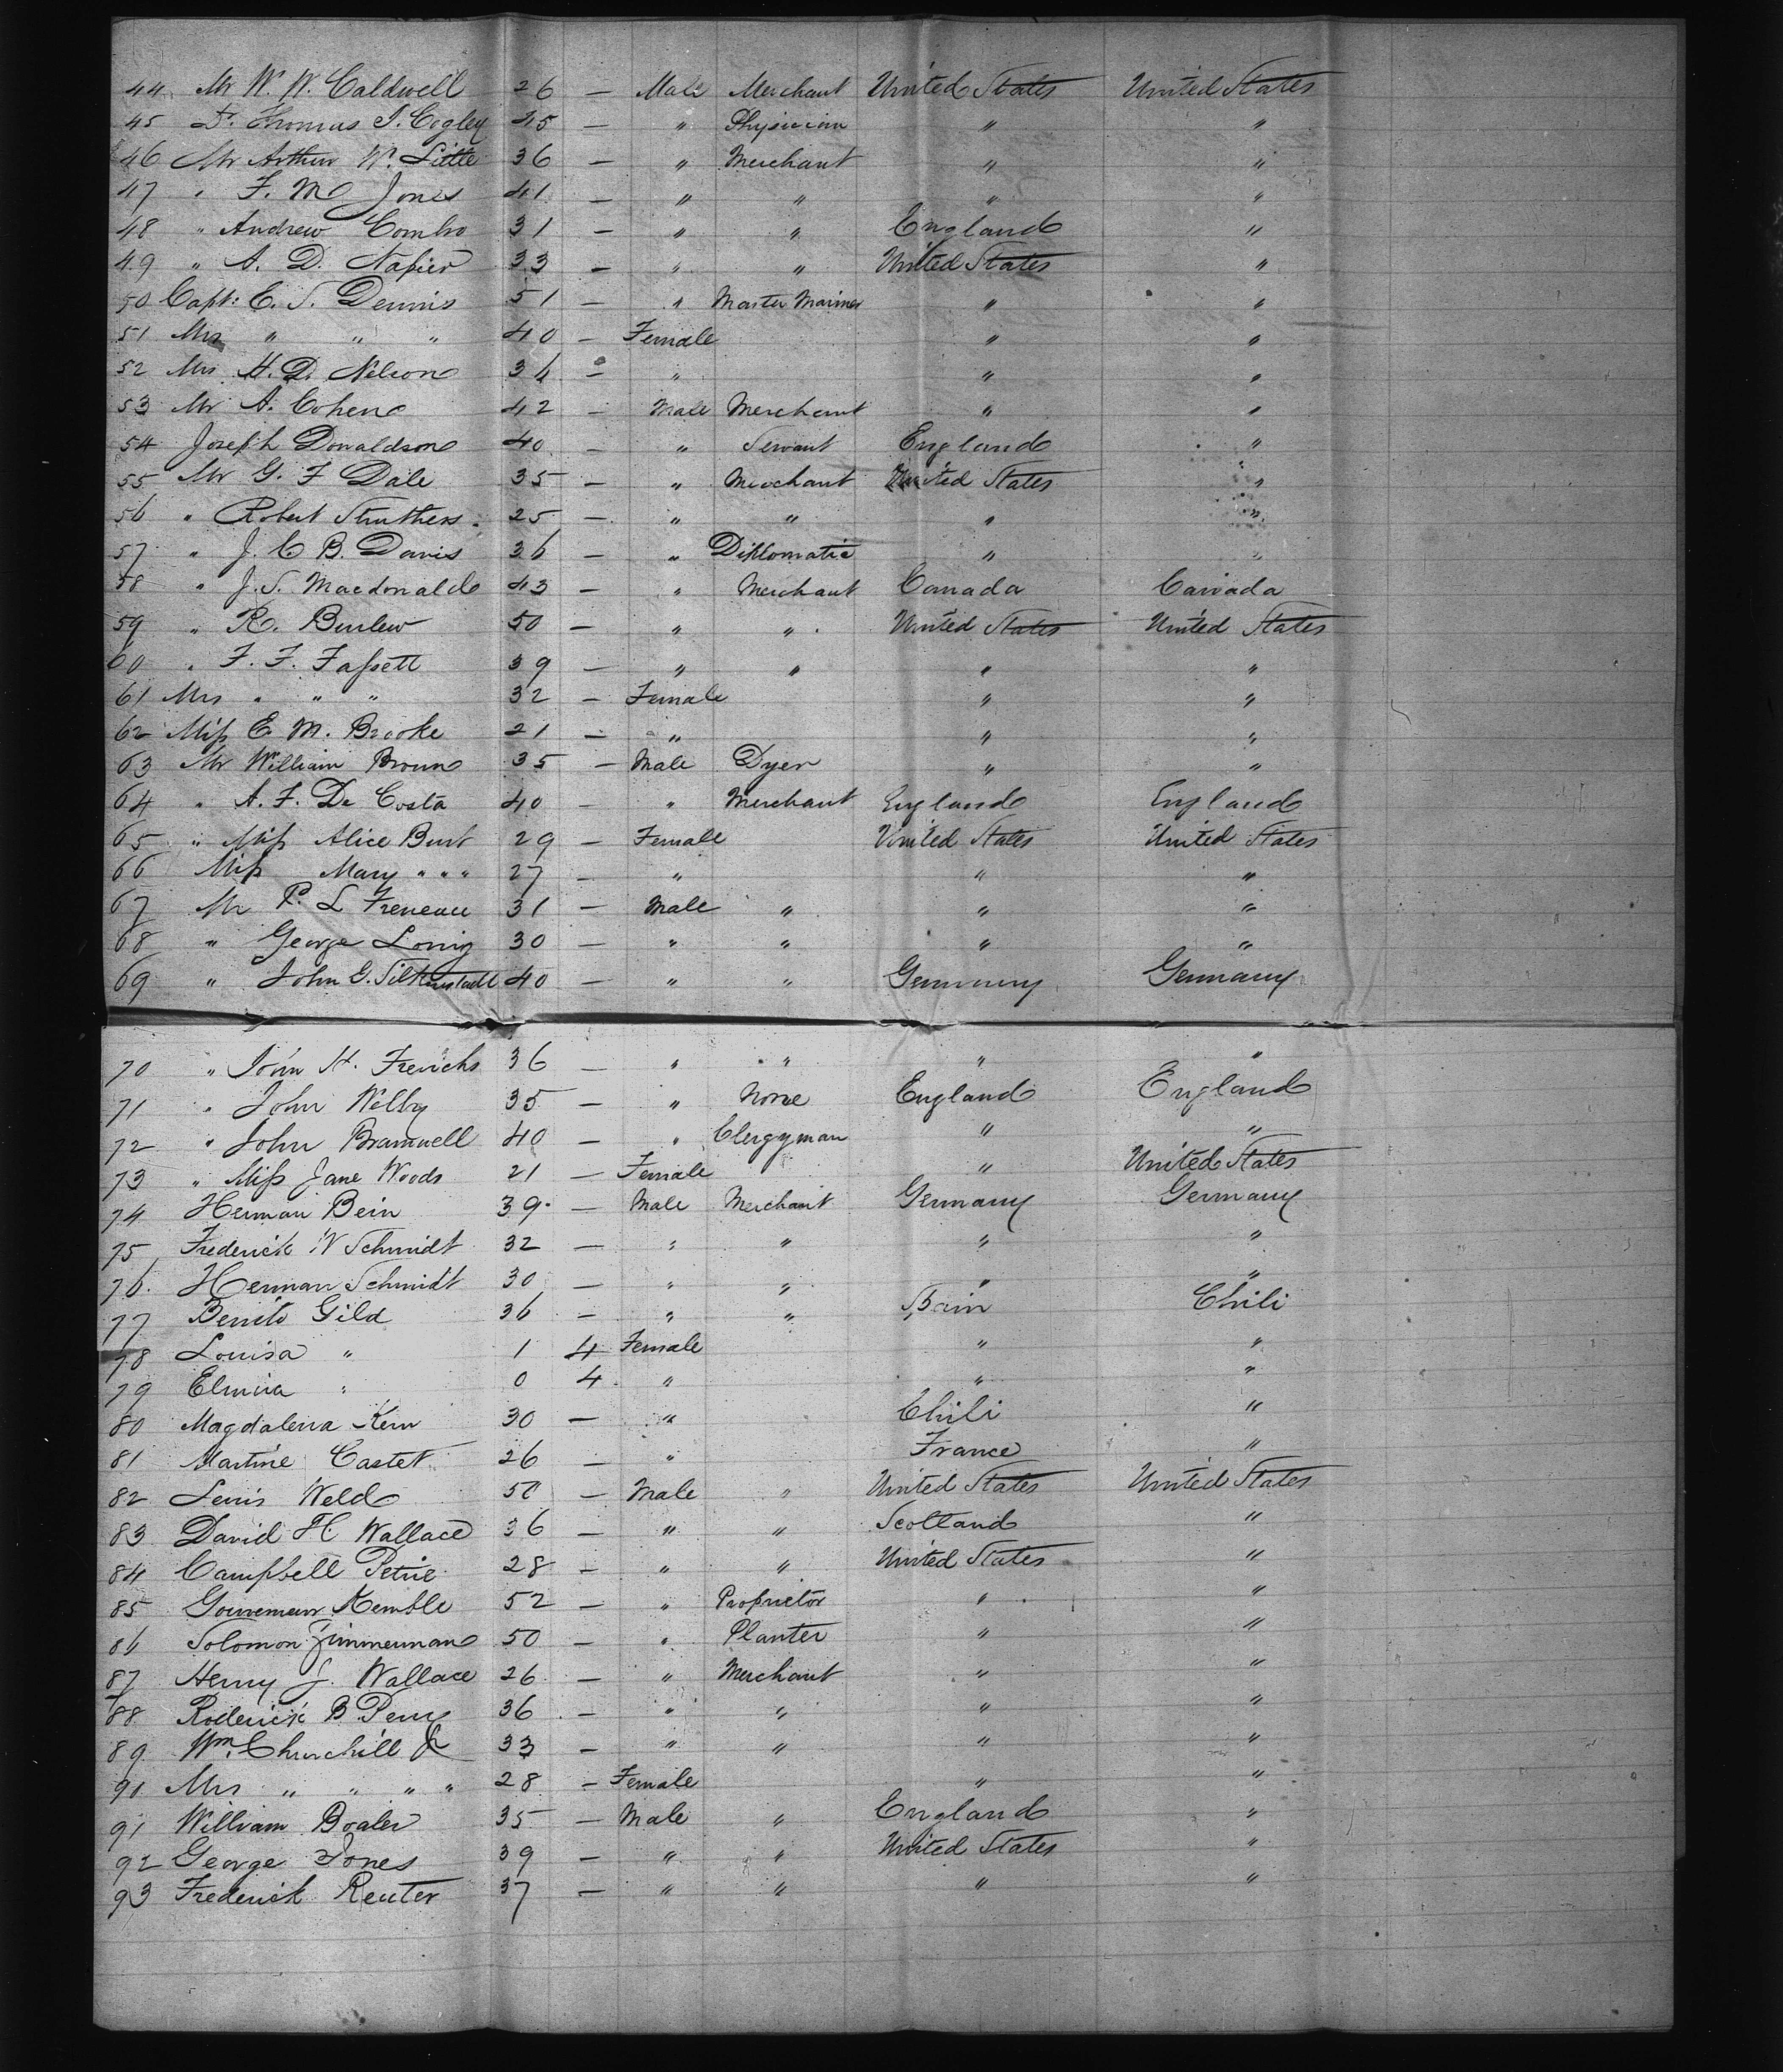 44 Mr W. W. Caldwell 26 — Male Merchant United States United States
45 Dr. Thomas J. Cogley 45 — " Physician " "
46 Mr Arthur W. Little 36 — " Merchant " "
47 " F. M Jones 41 — " " " "
48 " Andrew Combo 31 — " " England "
49 " A. D. Napier 33 — " " United States "
50 Capt: E. S. Dennis 51 — " Master Mariner " "
51 Mrs " " " 40 — Female " "
52 Mrs H. D. Nelson 34 — " " "
53 Mr A. Cohen 42 — Male Merchant " "
54 Joseph Donaldson 40 — " Servant England "
55 Mr G. F Dale 35 — " Merchant United States "
56 " Robert Struthers 25 — " " " "
57 " J. C B. Davis 36 — " Diplomatic " "
58 " J. S. Macdonald 43 — " Merchant Canada Canada
59 " R. Burlew 50 — " " United States United States
60 " F. F. Fassett 39 — " " " "
61 Mrs " " " 32 — Female " "
62 Miss E. M. Brooke 21 — " " "
63 Mr William Broun 35 — Male Dyer " "
64 " A. F. De Costa 40 — " Merchant England England
65 " Miss Alice Burt 29 — Female United States United States
66 Miss Mary " " " 27 — " " "
67 Mr P. L Freneau 31 — Male " " "
68 " George Lonig 30 — " " " "
69 " John G. 40 — " " Germany Germany
70 " John H. Frerichs 36 — " " " "
71 " John Welby 35 — " None England England
72 " John Bramwell 40 — " Clergyman " "
73 " Miss Jane Woods 21 — Female " United States
74 Herman Bein 39 — Male Merchant Germany Germany
75 Frederick W Schmidt 32 — " " " "
76. Herman Schmidt 30 — " " " "
77 Benito Gild 36 — " " Spain Chili
78 Louisa " 1 4 Female " "
79 Elmira " 0 4 " " "
80 Magdalena Kern 30 — " Chili "
81 Martine Castet 26 — " France "
82 Lewis Weld 50 — Male " United States United States
83 David H Wallace 36 — " " Scotland "
84 Campbell Petrie 28 — " " United States "
85 Gouverneur Kemble 52 — " Proprietor " "
86 Solomon Zimmerman 50 — " Planter " "
87 Henry J. Wallace 26 — " Merchant " "
88 Roderick B. Perry 36 — " " " "
89 Wm. Churchill Jr 33 — " " " "
90 Mrs " " " " 28 — Female " "
91 William Boaler 35 — Male " England "
92 George Jones 39 — " " United States "
93 Frederick Reuter 37 — " " " "